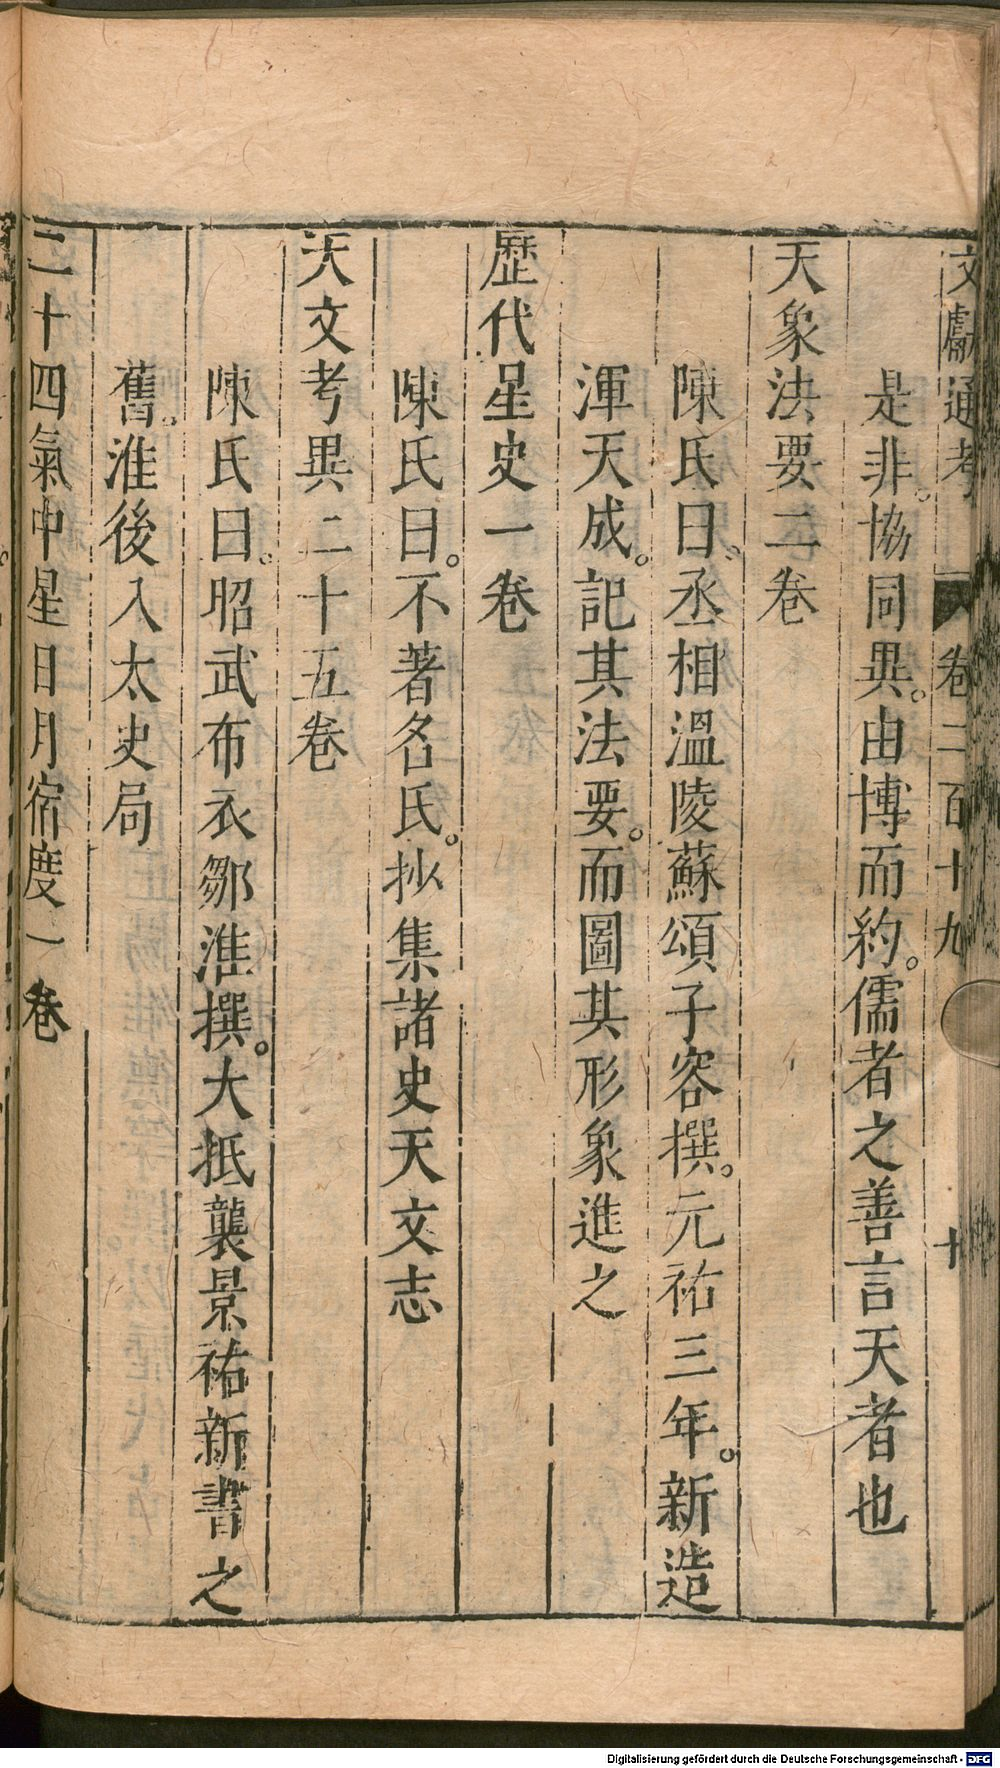 文獻通考 卷二百十九 十
是非。協同異。由博而約。儒者之善言天者也
天象法要二卷
陳氏曰。丞相溫陵蘇頌子容撰。元祐三年。新造
渾天成。記其法要。而圖其形象進之
歷代星史一卷
陳氏曰。不著名氏。抄集諸史天文志
天文考異二十五卷
陳氏曰。昭武布衣鄒淮撰。大抵襲景祐新書之
舊。淮後入太史局
二十四氣中星日月宿度一卷
Digitalisierung gefördert durch die Deutsche Forschungsgemeinschaft - DFG